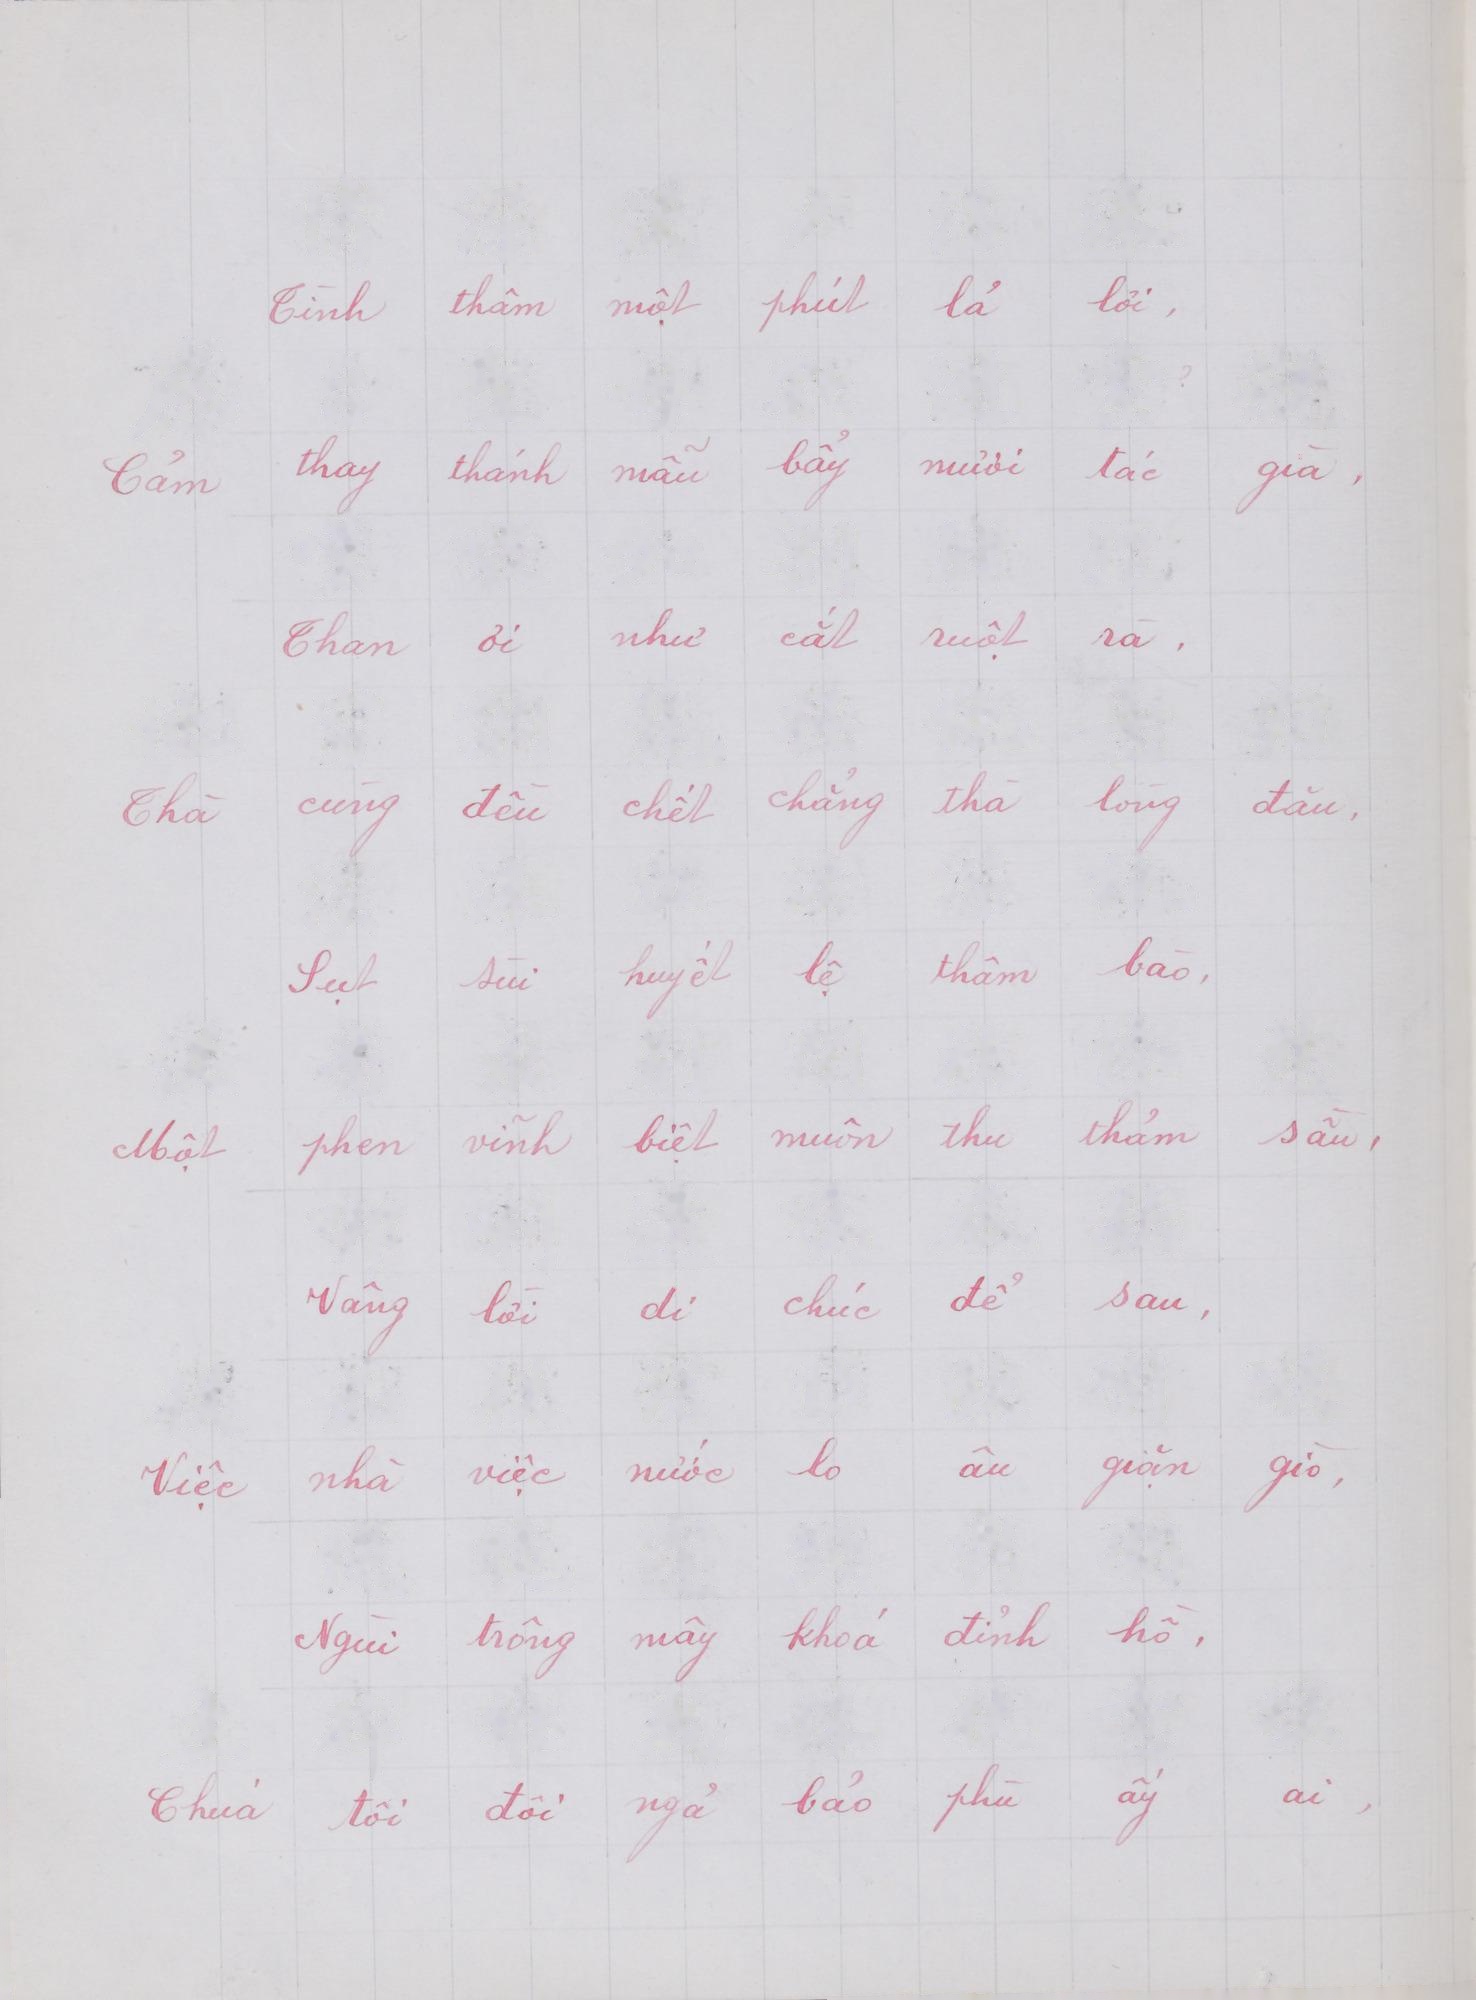 Tình thâm một phút lả lơi,
?
Cảm thay thánh mẫu bẩy mươi tác già,
Than ôi như cắt ruột rà,
Thà cùng đều chết chẳng thà lòng đău,
Sụt sùi huyết lệ thâm bào,
Một phen vĩnh biệt muôn thu thảm sầu,
Vâng lời di chúc để sau,
Việc nhà việc nước lo âu giặn giò,
Ngùi trông mây khoá đỉnh hồ,
Chuá tôi đôi ngả bảo phù ấy ai,